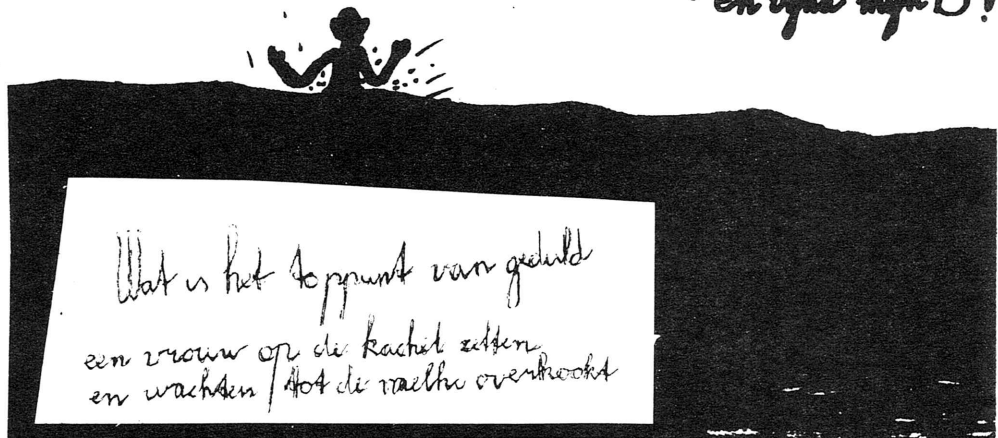 en mijn B!
Wat is het toppunt van geduld
een vrouw op de kachel zetten
en wachten / tot de melk overkookt